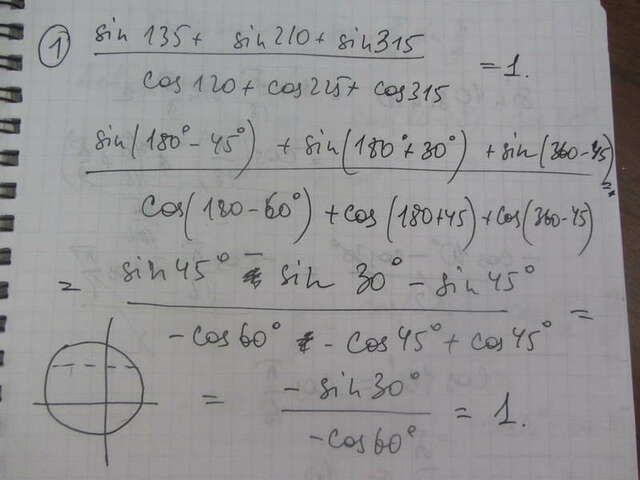 ① sin 135 + sin 210 + sin 315
= 1.
cos 120 + cos 225 + cos 315
sin(180° - 45°) + sin(180° + 30°) + sin(360 - 45)
=
cos(180 - 60°) + cos(180 + 45) + cos(360 - 45)
= sin 45° - sin 30° - sin 45° =
- cos 60° - cos 45° + cos 45°
= - sin 30° = 1.
- cos 60°